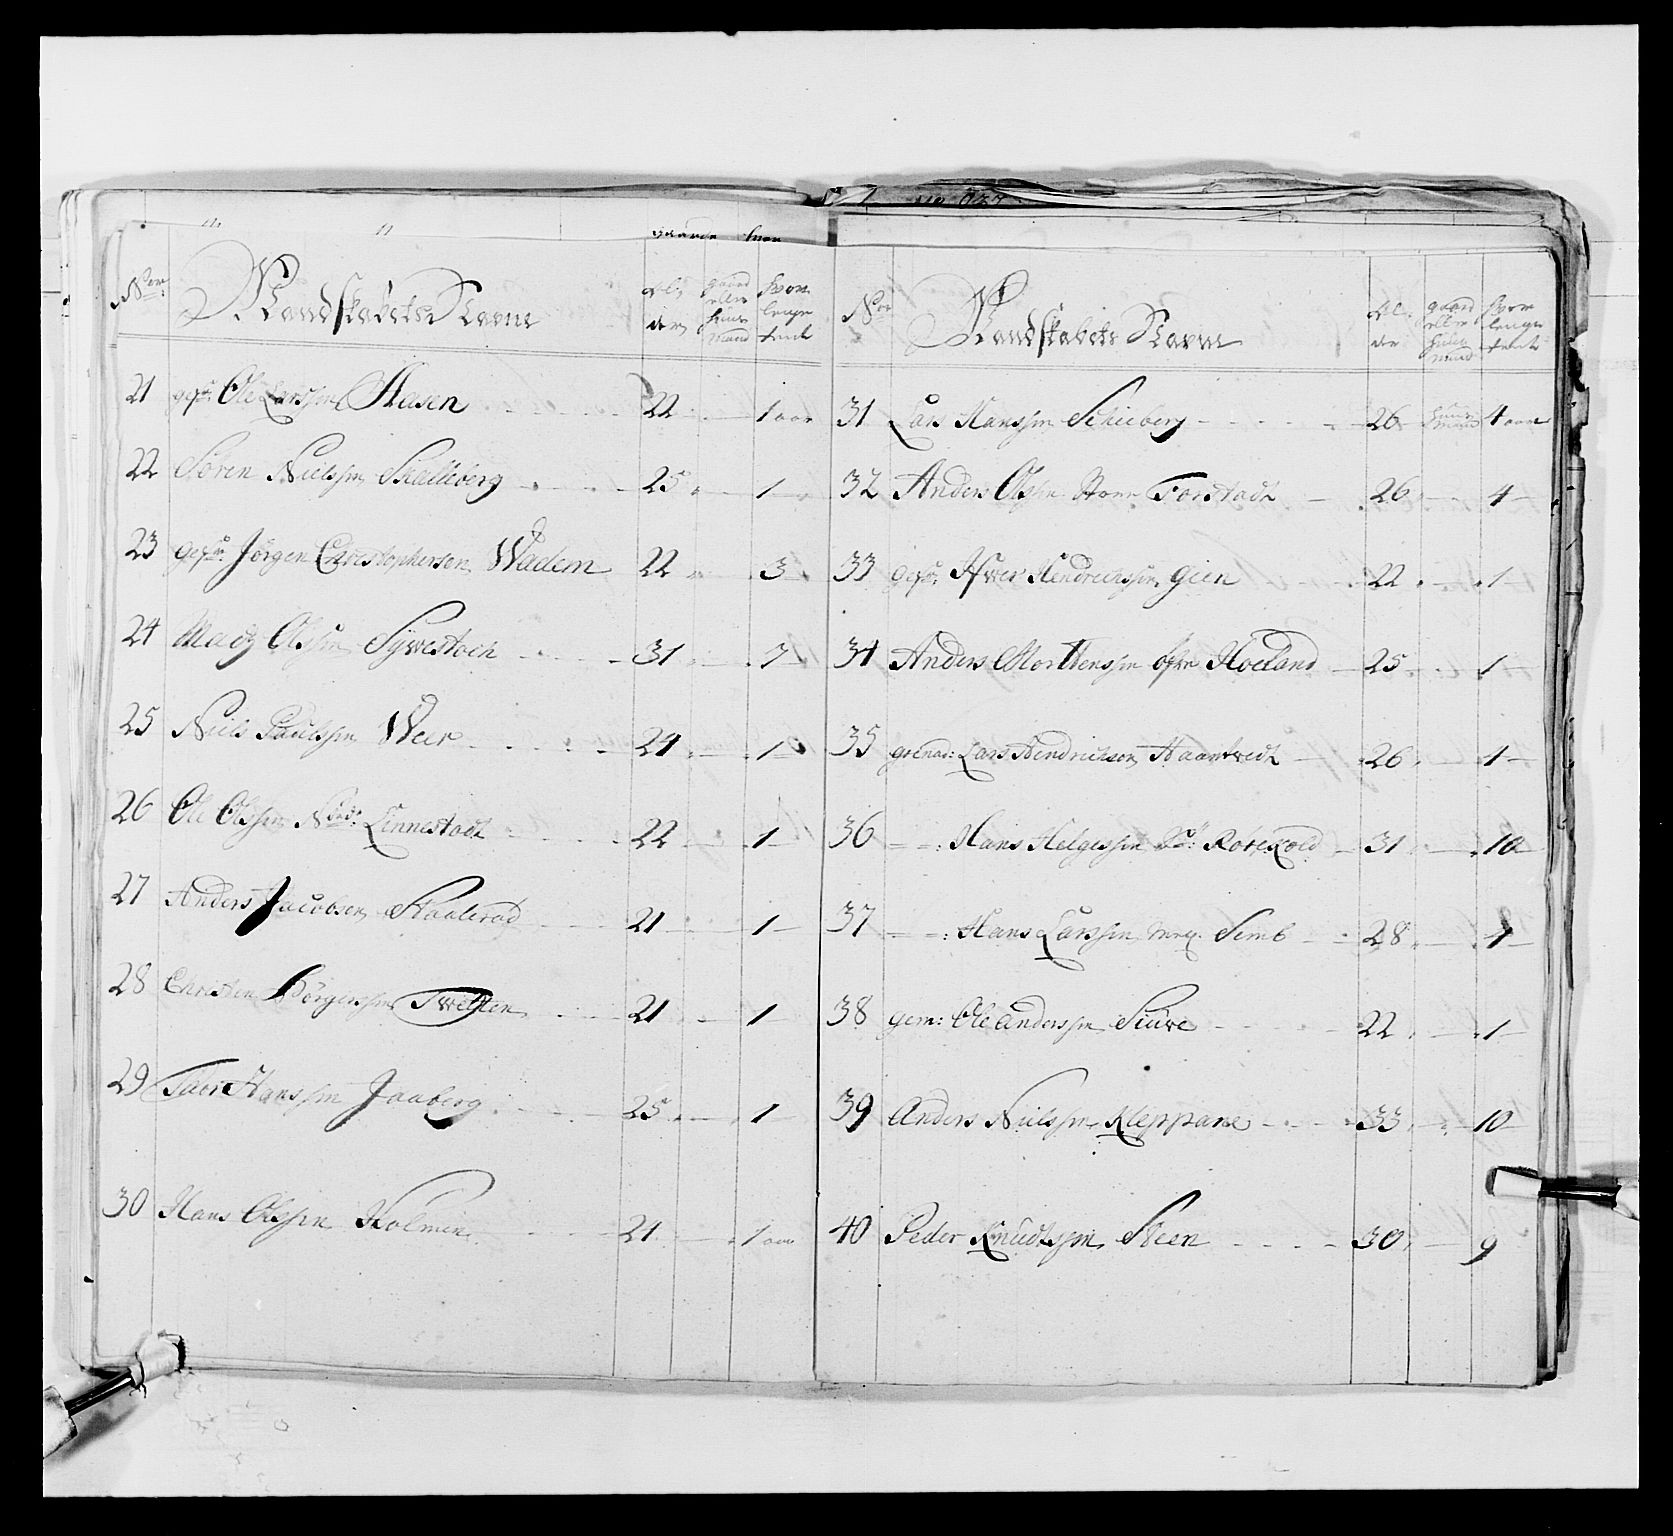 No 
Mandskabets Navne
Al,
der
gaard
eller
huus
mand
hvor
lenge
tient
21 gefr: Ole Larssøn Aasen 22 1 aar
22 Søren Nielssøn Skalleberg 25 1
23 gefr: Jørgen Christophersen Wadem 22 3
24 Madz Olssøn Sywestoch 31 7
25 Niels Paulssøn Weer 24 1
26 Ole Olssøn Nord: Linnestadt 22 1
27 Anders Jacobsen Skaalerød 21 1
28 Christen Børgerssøn Twelten 21 1
29 Taer Hanssøn Jaaberg 25 1
30 Hans Olssøn Holmen 21 1 aar
No
Mandskabets Navne
Al,
der
gaard
eller
huus
mand
hvor
lenge
tient
31 Lars Hanssøn Schieberg 26 huus mand 4 aar
32 Anders Olssøn Store Forstadt 26 4
33 gefr: Hendrichssøn gien 22 1
34 Anders Morttenssøn øfre Hoeland 25 1
35 grenad: Lars Hendrichsen Haartvedt 26 1
36 Hans Helgessøn Rørkold 31 10
37 Hans Larssøn Semb 28
38 gem: Ole Anderssøn Siuve 22 1
39 Anders Nielssøn Kleppane 33 10
40 Peder Knudtssøn Steen 30 9